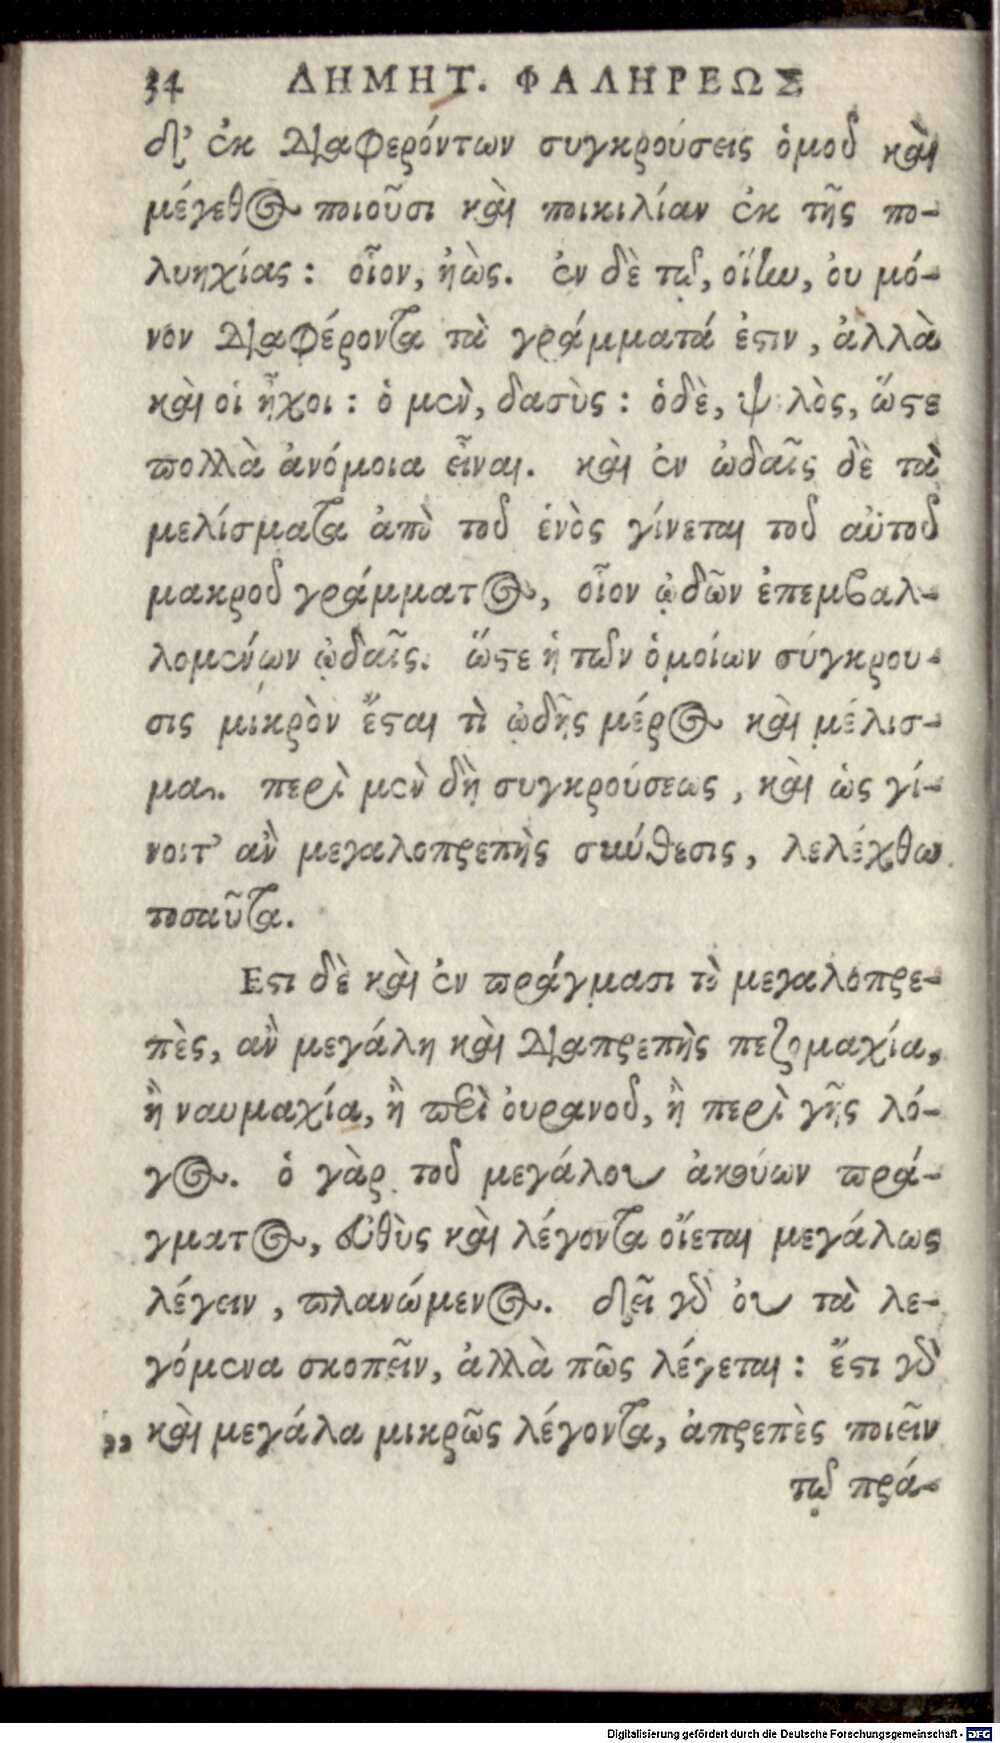 34 ΔΗΜΗΤ. ΦΑΛΗΡΕΩΣ
δι' ἐκ διαφερόντων συγκρούσεις ὁμοῦ καὶ
μέγεθος ποιοῦσι καὶ ποικιλίαν ἐκ τῆς πο-
λυηχίας: οἷον, ἠώς. ἐν δὲ τῷ, οἵην, ὀυ μό-
νον διαφέροντα τὰ γράμματά ἐστιν, ἀλλὰ
καὶ οἱ ἦχοι: ὁ μὲν, δασὺς: ὁδὲ, ψιλὸς, ὥστε
πολλὰ ἀνόμοια εἶναι. καὶ ἐν ὠδαῖς δὲ τὰ
μελίσματα ἀπὸ τοῦ ἑνὸς γίνεται τοῦ αὐτοῦ
μακροῦ γράμματος, οἷον ᾠδῶν ἐπεμβαλ-
λομένων ᾠδαῖς. ὥστε ἡ τῶν ὁμοίων σύγκρου-
σις μικρὸν ἔσται τὶ ᾠδῆς μέρος καὶ μέλισ-
μα. περὶ μὲν δὴ συγκρούσεως, καὶ ὡς γί-
νοιτ' ἂν μεγαλοπρεπὴς σύνθεσις, λελέχθω
τοσαῦτα.
Εστι δὲ καὶ ἐν πράγμασι τὸ μεγαλοπρε-
πὲς, ἂν μεγάλη καὶ διαπρεπὴς πεζομαχία,
ἢ ναυμαχία, ἢ περὶ ὀυρανοῦ, ἢ περὶ γῆς λό-
γος. ὁ γὰρ τοῦ μεγάλου ἀκούων πρά-
γματος, εὐθὺς καὶ λέγοντα οἴεται μεγάλως
λέγειν, πλανώμενος. δεῖ γὰρ ὀυ τὰ λε-
γόμενα σκοπεῖν, ἀλλὰ πῶς λέγεται: ἔστι γὰρ
„ καὶ μεγάλα μικρῶς λέγοντα, ἀπρεπὲς ποιεῖν
τῷ πρά-
Digitalisierung gefördert durch die Deutsche Forschungsgemeinschaft - DFG